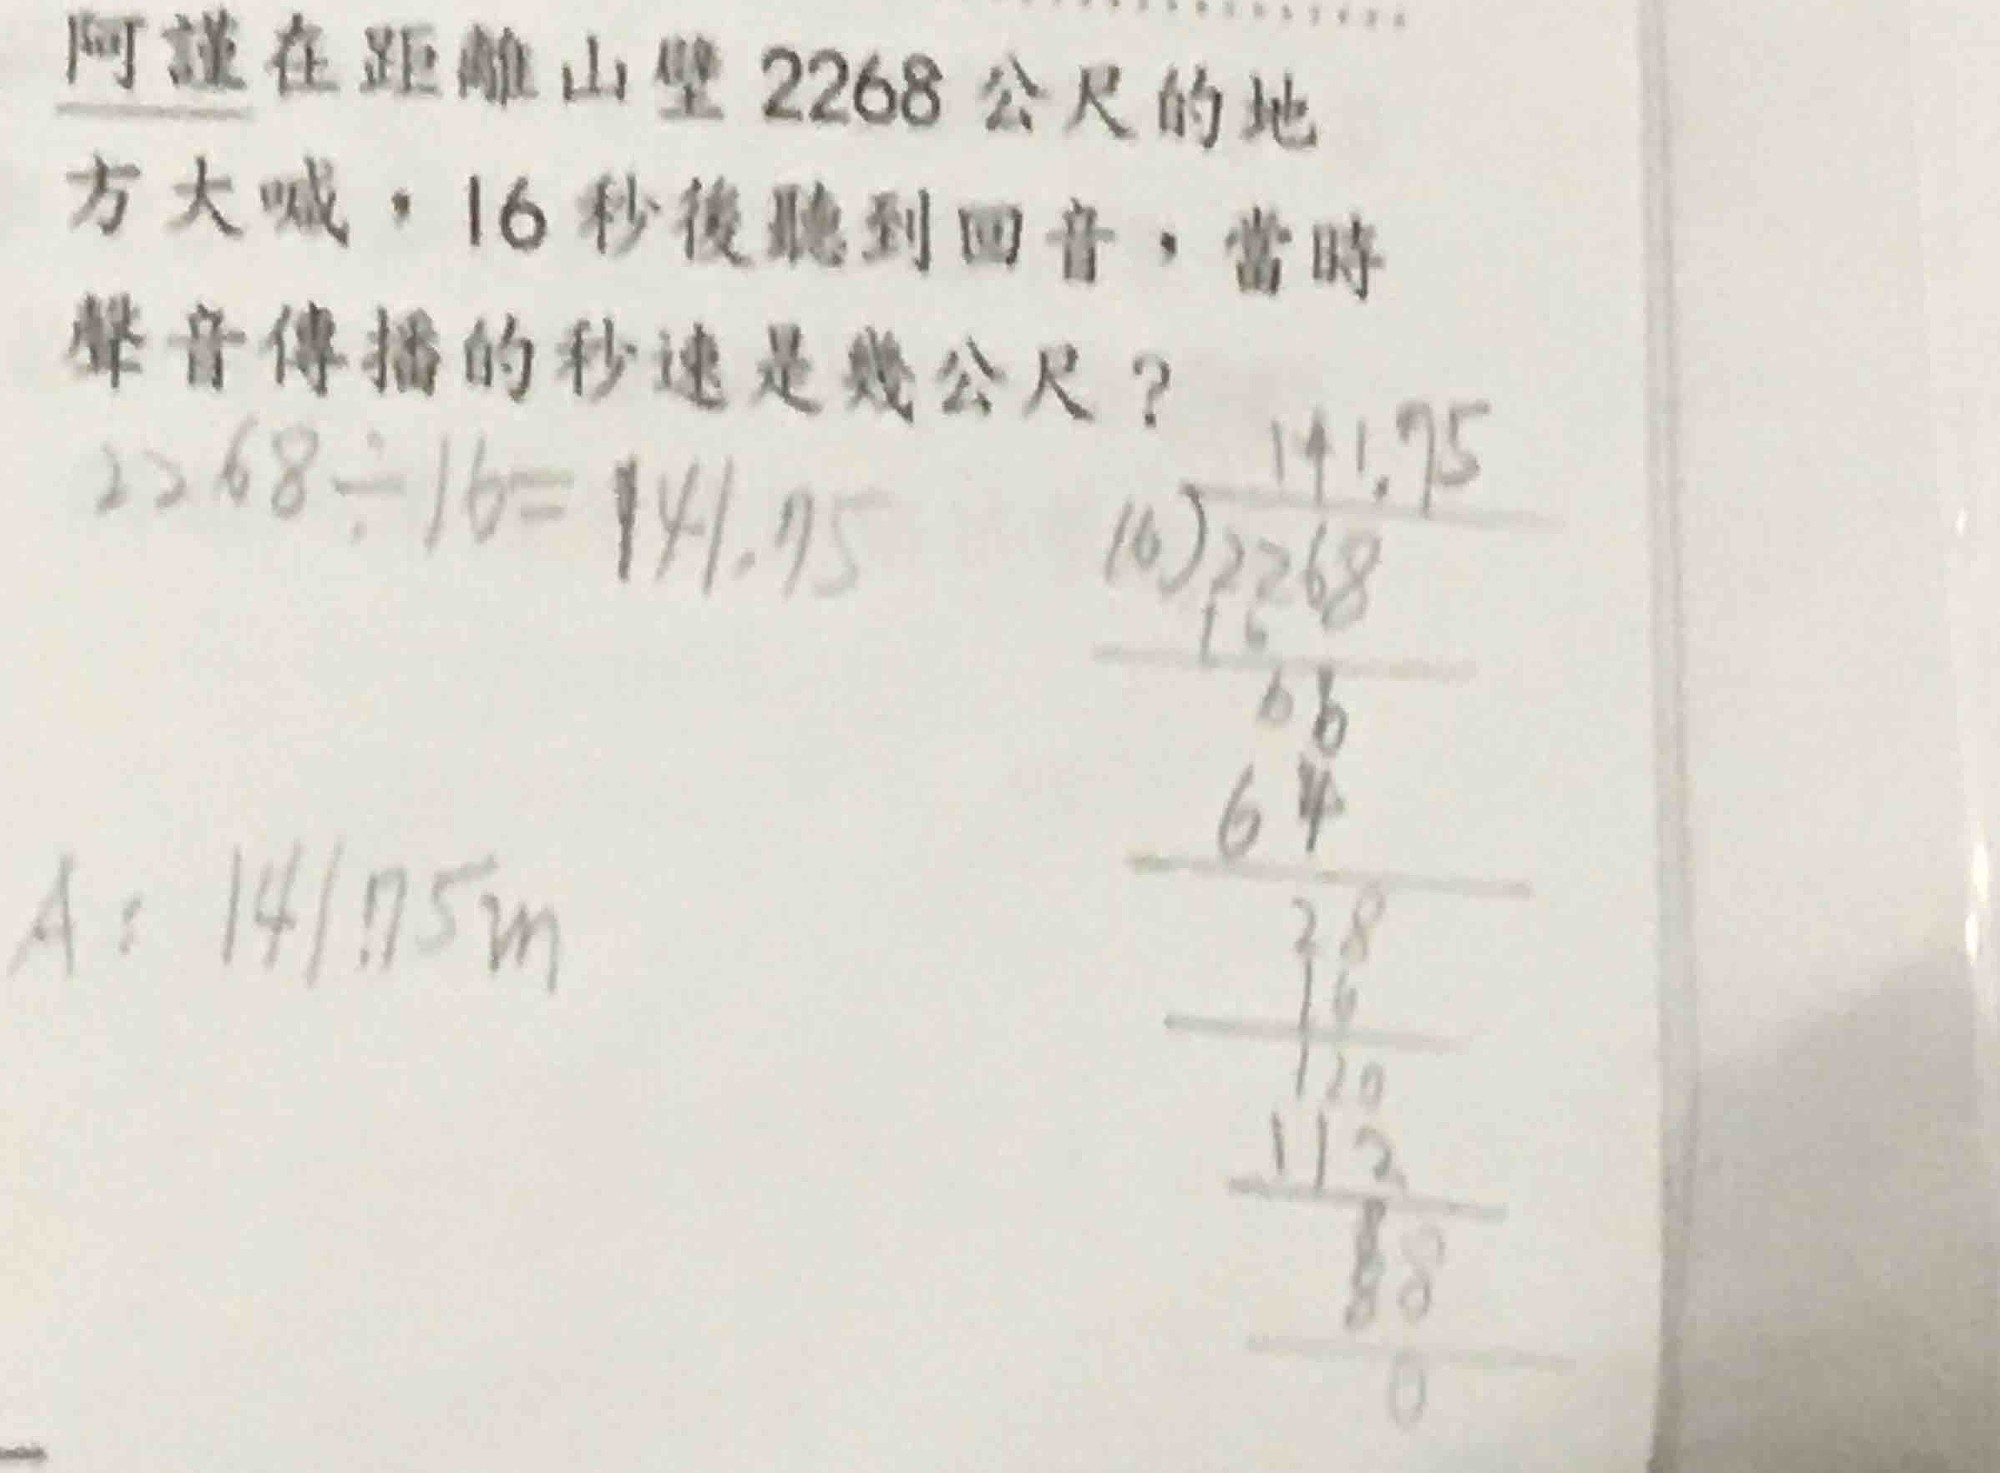 阿謹在距離山壁 2268 公尺的地
方大喊，16 秒後聽到回音，當時
聲音傳播的秒速是幾公尺？
2268÷16=141.75
141.75
16)2268
16
66
64
28
16
120
112
8
0
A: 141.75m